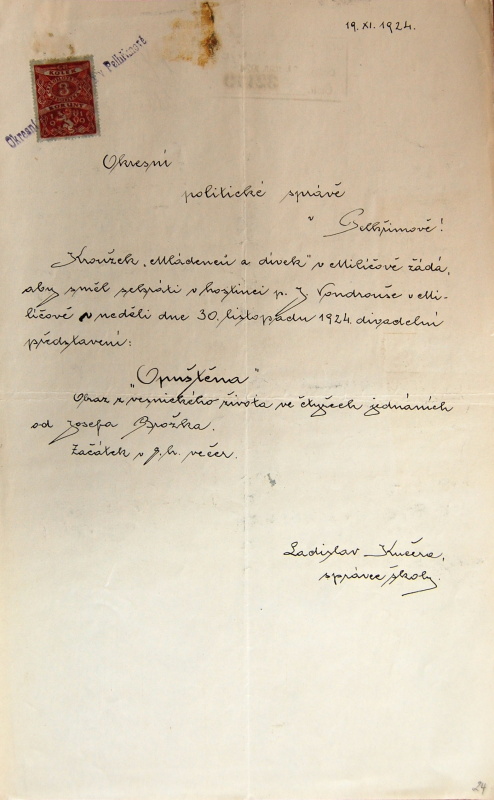 19. XI. 1924.
KOLEK
3
KORUNY
Okresní Pelhřimově
Okresní
politické správě
v
Pelhřimově!
Kroužek „Mládenců a dívek" v Miličově žádá,
aby směl sehráti v hostinci p. J. Vondrouše v Mi-
ličově v neděli dne 30. listopadu 1924. divadelní
představení:
„Opuštěna"
Obraz z vesnického života ve čtyřech jednáních
od Josefa Brožka.
Začátek v 8. h. večer.
Ladislav Kučera,
správce školy.
24